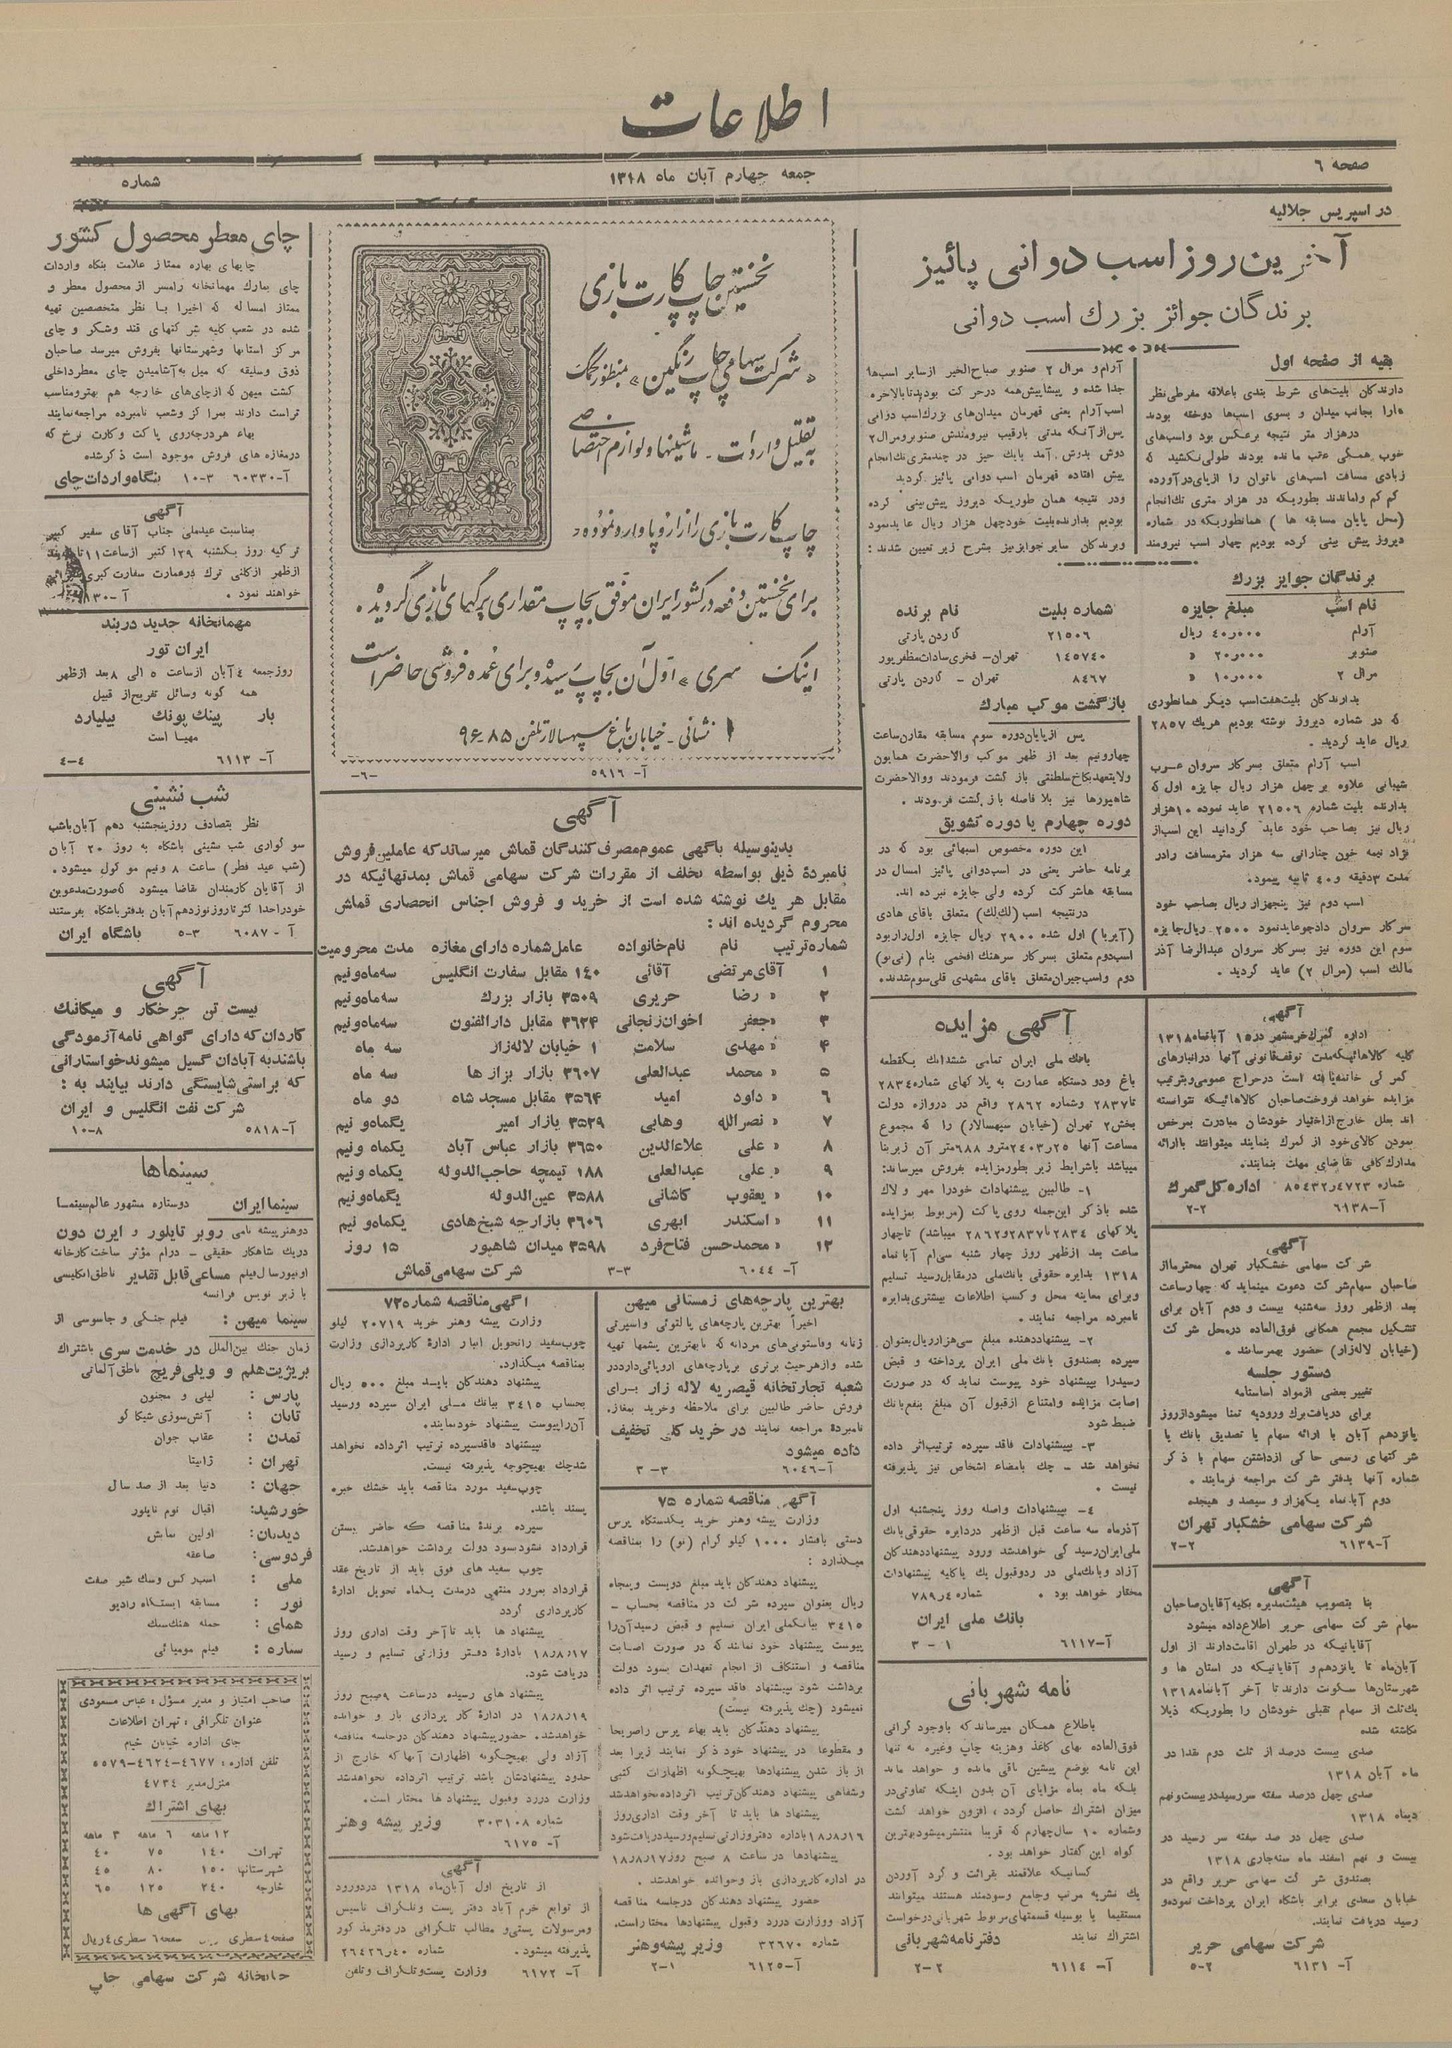 اطلاعات
صفحه ٦
جمعه چهارم آبان ماه ۱۳۱۸
شماره
در اسپریس جلالیه
آخرین روز اسب دوانی پائیز
برندگان جوائز بزرك اسب دوانی
بقیه از صفحه اول
دارندگان بلیت‌های شرط بندی باعلاقه مفرطی نظر
بجانب میدان و بسوی اسب‌ها دوخته بودند
درهزار متر نتیجه برعکس بود واسب‌های
خوب همگی عقب مانده بودند طولی نکشید که
زیادی مسافت اسب‌های ناتوان را ازپای درآورده
کم کم واماندند بطوریکه در هزار متری تك‌انجام
(محل پایان مسابقه ها) همانطوریکه در شماره
دیروز پیش بینی کرده بودیم چهار اسب نیرومند
آرام و مرال ۲ صنوبر صباح‌الخیر ازسایر اسب‌ها
جدا شده و پیشاپیش همه درحرکت بودند تا بالاخره
اسب آرام یعنی قهرمان میدان‌های بزرك اسب دوانی
پس‌ازآنکه مدتی بارقیب نیرومندش صنوبر ومرال۲
دوش بدوش آمد بایك خیز در چندمتری تك‌انجام
پیش افتاده قهرمان اسب دوانی پائیز گردید
ودر نتیجه همان طوریکه دیروز پیش‌بینی کرده
بودیم بدارنده بلیت خود چهل هزار ریال عایدنمود
وبرندگان سایر جوایز نیز بشرح زیر تعیین شدند:
برندگان جوایز بزرك
نام اسب مبلغ جایزه شماره بلیت نام برنده
آرام ۴۰ر۰۰۰ ریال ۲۱۵۰۶ گاردن پارتی
صنوبر ۲۰ر۰۰۰ » ۱۴۵۷۴۰ تهران- فخری‌سادات مظفرپور
مرال ۲ ۱۰ر۰۰۰ » ۸۴۶۷ تهران - گاردن پارتی
بدارندگان بلیت هفت‌اسب دیگر همانطوری
که در شماره دیروز نوشته بودیم هریك ۲۸۵۷
ریال عاید گردید.
اسب آرام متعلق بسرکار سروان عرب
شیبانی علاوه بر چهل هزار ریال جایزه اول که
بدارنده بلیت شماره ۲۱۵۰۶ عاید نموده ۱۰هزار
ریال نیز بصاحب خود عاید گردانید این اسب‌از
نژاد نیمه خون چنارانی سه هزار مترمسافت رادر
مدت ۳دقیقه و۴۰ ثانیه پیمود.
اسب دوم نیز پنجهزار ریال بصاحب خود
سرکار سروان دادجو عاید نمود ۲۵۰۰ ریال‌جایزه
سوم این دوره نیز بسرکار سروان عبدالرضا آذر
مالك اسب (مرال ۲) عاید گردید.
بازگشت موکب مبارك
پس ازپایان‌دوره سوم مسابقه مقارن‌ساعت
چهارونیم بعد از ظهر موکب والاحضرت همایون
ولایتعهد بکاخ سلطنتی بازگشت فرمودند ووالاحضرت
شاهپورها نیز بلا فاصله بازگشت فرمودند.
دوره چهارم یا دوره تشویق
این دوره مخصوص اسبهائی بود که در
برنامه حاضر یعنی در اسب‌دوانی پائیز امسال در
مسابقه هاشرکت کرده ولی جایزه نبرده اند.
درنتیجه اسب (لك‌لك) متعلق باقای هادی
(آیریا) اول شده ۲۹۰۰ ریال جایزه اول‌راربود
اسب‌دوم‌متعلق بسرکار سرهنك افخمی بنام (نی‌نو)
دوم واسب‌جیران‌متعلق باقای مشهدی قلی‌سوم‌شدند.
آگهی
اداره گمرك خرمشهر در۱۵ آبانماه۱۳۱۸
کلیه کالاهائیکه‌مدت توقف‌قانونی آنها درانبارهای
گمرکی خاتمه یافته است درحراج عمومی وبترتیب
مزایده خواهد فروخت صاحبان کالاهائیکه نتوانسته
اند بعلل خارج ازاختیار خودشان مبادرت بمرخص
نمودن کالای‌خود از گمرك بنمایند میتوانند باارائه
مدارك‌کافی تقاضای مهلت بنمایند.
شماره ۴۷۲۳ر۸۵۴۳۲ اداره کل گمرك
آ-۶۱۳۸ ۲-۲
آگهی
شرکت سهامی خشکبار تهران محترماً‌از
صاحبان سهام‌شرکت دعوت مینماید که چهارساعت
بعد ازظهر روز سه‌شنبه بیست و دوم آبان برای
تشکیل مجمع همگانی فوق‌العاده درمحل شرکت
(خیابان لاله‌زار) حضور بهمرسانند.
دستور جلسه
تغییر بعضی ازمواد اساسنامه
برای دریافت‌برك ورودیه تمنا میشودازروز
پانزدهم آبان با ارائه سهام یا تصدیق بانك یا
شرکتهای رسمی حاکی ازداشتن سهام با ذکر
شماره آنها بدفتر شرکت مراجعه فرمایند.
دوم آبانماه یکهزار و سیصد و هیجده
شرکت سهامی خشکبار تهران
آ-۶۱۳۹ ۲-۲
آگهی
بنا بتصویب هیئت‌مدیره بکلیه‌آقایان‌صاحبان
سهام شرکت سهامی حریر اطلاع‌داده میشود
آقایانیکه در طهران اقامت‌دارند از اول
آبان‌ماه تا پانزدهم و آقایانیکه در استان ها و
شهرستان‌ها سکونت دارند تا آخر آبانماه۱۳۱۸
یك‌ثلث از سهام تقبلی خودشان را بطوریکه ذیلا
نگاشته شده
صدی بیست درصد از ثلث دوم نقدا در
ماه آبان ۱۳۱۸
صدی چهل درصد سفته سررسید دربیست‌ونهم
دیماه ۱۳۱۸
صدی چهل در صد سفته سر رسید در
بیست و نهم اسفند ماه سنه‌جاری ۱۳۱۸
بصندوق شرکت سهامی حریر واقع در
خیابان سعدی برابر باشگاه ایران پرداخت نموده‌و
رسید دریافت نمایند.
شرکت سهامی حریر
آ- ۶۱۳۱ ۵-۲
آگهی مزایده
بانك ملی ایران تمامی ششدانك یکقطعه
باغ ودو دستگاه عمارت به پلاکهای شماره۲۸۳۴
تا۲۸۳۷ وشماره ۲۸۶۲ واقع در دروازه دولت
بخش۲ تهران (خیابان سپهسالار) را که مجموع
مساعت آنها ۲۴۰۳ر۲۵مترو ۶۸۸متر آن زیربنا
میباشد باشرایط زیر بطورمزایده بفروش میرساند:
۱- طالبین پیشنهادات خودرا مهر و لاك
شده باذکر این‌جمله روی پاکت (مربوط بمزایده
پلاکهای ۲۸۳۴ تا ۲۸۳۷ و ۲۸۶۲ میباشد) تاچهار
ساعت بعد ازظهر روز چهار شنبه سی‌ام آبانماه
۱۳۱۸ بدایره حقوقی بانك‌ملی درمقابل‌رسید تسلیم
وبرای معاینه محل و کسب اطلاعات بیشتری‌بدایره
نامبرده مراجعه نمایند.
۲- پیشنهاددهنده مبلغ سی‌هزارریال‌بعنوان
سپرده بصندوق بانك ملی ایران پرداخته و قبض
رسیدرا بپیشنهاد خود پیوست نماید که در صورت
اصابت مزایده وامتناع ازقبول آن مبلغ بنفع‌بانك
ضبط شود
۳- بپیشنهادات فاقد سپرده ترتیب‌اثر داده
نخواهد شد – چك بامضاء اشخاص نیز پذیرفته
نیست.
۴- بپیشنهادات واصله روز پنجشنبه اول
آذرماه سه ساعت قبل ازظهر دردایره حقوقی‌بانك
ملی‌ایران رسیدگی خواهدشد ورود پیشنهاددهندگان
آزاد وبانك‌ملی در ردوقبول یك یاکلیه پیشنهادات
مختار خواهد بود. شماره ۴ر۷۸۹
بانك ملی ایران
آ-۶۱۱۷ ۱-۳
نامه شهربانی
باطلاع همکان میرساند که باوجود گرانی
فوق‌العاده بهای کاغذ وهزینه چاپ وغیره نه تنها
این نامه بوضع پیشین باقی مانده و خواهد ماند
بلکه ماه بماه مزایای آن بدون اینکه تفاوتی‌در
میزان اشتراك حاصل گردد، افزون خواهد گشت
وشماره ۱۰ سال‌چهارم که قریبا منتشرمیشودبهترین
گواه این گفتار خواهد بود.
کسانیکه علاقمند بقرائت و گرد آوردن
یك نشریه مرتب وجامع وسودمند هستند میتوانند
مستقیما یا بوسیله قسمتهای‌مربوط شهربانی‌درخواست
اشتراك نمایند دفترنامه شهربانی
آ- ۶۱۱۴ ۲-۲
نخستین چاپ کارت بازی
«شرکت سهامی چاپ رنگین» بمنظور کمك
به تقلیل واردات - ماشینها ولوازم اختصاصی
چاپ کارت بازی را از اروپا وارد نموده و
برای نخستین دفعه در کشور ایران موفق بچاپ مقداری برگهای بازی گردیده.
اینك سری «اول آن بچاپ رسیده و برای عمده فروشی حاضر است
نشانی - خیابان باغ سپهسالار تلفن ۸۵-۹۶
آ- ۵۹۱۶ -۶-
آگهی
بدینوسیله باگهی عموم‌مصرف‌کنندگان قماش میرساندکه عاملین‌فروش
نامبردهٔ ذیل بواسطه تخلف از مقررات شرکت سهامی قماش بمدتهائیکه در
مقابل هریك نوشته شده است از خرید و فروش اجناس انحصاری قماش
محروم گردیده اند:
شماره‌ترتیب نام نام‌خانواده عامل‌شماره دارای مغازه مدت محرومیت
۱ آقای‌مرتضی آقائی ۱۴۰ مقابل سفارت انگلیس سه‌ماه‌ونیم
۲ » رضا حریری ۳۵۰۹ بازار بزرك سه‌ماه‌ونیم
۳ »جعفر اخوان‌زنجانی ۳۶۲۴ مقابل دارالفنون سه‌ماه‌ونیم
۴ »مهدی سلامت ۱ خیابان لاله‌زار سه ماه
۵ » محمد عبدالعلی ۳۶۰۷ بازار بزاز ها سه ماه
۶ » داود امید ۳۵۶۴ مقابل مسجد شاه دو ماه
۷ » نصرالله وهابی ۳۵۲۹ بازار امیر یکماه‌و نیم
۸ » علی علاءالدین ۳۶۵۰ بازار عباس آباد یکماه ونیم
۹ » علی عبدالعلی ۱۸۸ تیمچه حاجب‌الدوله یکماه ونیم
۱۰ » یعقوب کاشانی ۳۵۸۸ عین‌الدوله یکماه‌و نیم
۱۱ » اسکندر ابهری ۳۶۰۶ بازارچه شیخ‌هادی یکماه‌و نیم
۱۲ » محمدحسن فتاح‌فرد ۳۵۹۸ میدان شاهپور ۱۵ روز
آ- ۶۰۴۴ شرکت سهامی قماش ۳-۳
بهترین پارچه‌های زمستانی میهن
اخیراً بهترین پارچه‌های پالتوئی واسپرتی
زنانه وفاستونی‌های مردانه که بابهترین پشمها تهیه
شده وازهرحیث برتری برپارچه‌های اروپائی‌دارددر
شعبه تجارتخانه قیصریه لاله زار برای
فروش حاضر طالبین برای ملاحظه وخرید بمغازه
نامبرده مراجعه نمایند در خرید کلی تخفیف
داده میشود
آ-۶۰۴۶ ۳-۳
آگهی مناقصه شماره ۷۵
وزارت پیشه وهنر خرید یکدستگاه پرس
دستی بافشار ۱۰۰۰ کیلو گرام (نو) را بمناقصه
میگذارد:
پیشنهاد دهندگان باید مبلغ دویست وپنجاه
ریال بعنوان سپرده شرکت در مناقصه بحساب -
۳۴۱۵ ببانکملی ایران تسلیم و قبض رسیدآن‌را
پیوست پیشنهاد خود نمایند که در صورت اصابت
مناقصه و استنکاف از انجام تعهدات بسود دولت
برداشت شود بپیشنهاد فاقد سپرده ترتیب اثر داده
نمیشود (چك پذیرفته نیست)
پیشنهاد دهندگان باید بهاء پرس راصریحا
و مقطوعا در پیشنهاد خود ذکر نمایند زیرا بعد
از باز شدن پیشنهادها بهیچگونه اظهارات کتبی
وشفاهی پیشنهاد دهندگان‌ترتیب اثرداده نخواهدشد
پیشنهاد ها باید تا آخر وقت اداری‌روز
۱۸ر۸ر۱۶ باداره دفتروزارتی‌تسلیم‌ورسیددریافت‌شود
پیشنهادها در ساعت ۸ صبح روز ۱۸ر۸ر۱۷
در اداره کارپردازی باز وخوانده خواهدشد.
حضور پیشنهاد دهندگان درجلسه مناقصه
آزاد ووزارت دررد وقبول پیشنهادها مختاراست.
شماره ۳۲۶۷۰ وزیر پیشه‌وهنر
آ-۶۱۲۵ ۲-۱
آگهی مناقصه شماره ۷۳
وزارت پیشه وهنر خرید ۲۰۷۱۹ کیلو
چوب‌سفید راتحویل انبار ادارهٔ کارپردازی وزارت
بمناقصه میگذارد.
پیشنهاد دهندگان باید مبلغ ۵۰۰ ریال
بحساب ۳۴۱۵ ببانك ملی ایران سپرده ورسید
آن‌راپیوست پیشنهاد خود نمایند.
بپیشنهاد فاقدسپرده ترتیب اثرداده نخواهد
شدچك بهیچوجه پذیرفته نیست.
چوب‌سفید مورد مناقصه باید خشك خبره
پسند باشد.
سپرده برندهٔ مناقصه که حاضر ببستن
قرارداد نشودبسود دولت برداشت خواهدشد.
چوب سفید های فوق باید از تاریخ عقد
قرارداد بمرور منتهی درمدت یکماه تحویل ادارهٔ
کارپردازی گردد
پیشنهاد ها باید تاآخر وقت اداری روز
۱۸ر۸ر۱۷ بادارهٔ دفتر وزارتی تسلیم و رسید
دریافت شود.
پیشنهاد های رسیده درساعت ۹صبح روز
۱۸ر۸ر۱۹ در ادارهٔ کار پردازی باز و خوانده
خواهدشد. حضورپیشنهاد دهندگان درجلسه مناقصه
آزاد ولی بهیچگونه اظهارات آنها که خارج از
حدود پیشنهادشان باشد ترتیب اثرداده نخواهدشد
وزارت دررد وقبول پیشنهاد ها مختار است.
شماره ۳۰۳۱۰۸ وزیر پیشه وهنر
آ- ۶۱۷۵
آگهی
از تاریخ اول آبان‌ماه ۱۳۱۸ دردورود
از توابع خرم آباد دفتر پست وتلگراف تاسیس
ومرسولات پستی‌و مطالب تلگرافی دردفترمذکور
پذیرفته میشود. شماره ۴۰ر۲۶۴۲۶
آ- ۶۱۷۲ وزارت پست‌وتلگراف وتلفن
چای معطر محصول کشور
چایهای بهاره ممتاز علامت بنگاه واردات
چای بمارك مهمانخانه رامسر از محصول معطر و
ممتاز امساله که اخیرا بنا نظر متخصصین تهیه
شده در شعب کلیه شرکتهای قند وشکر و چای
مرکز استانها وشهرستانها بفروش میرسد صاحبان
ذوق وسلیقه که میل به‌آشامیدن چای معطرداخلی
کشت میهن که ازچای‌های خارجه هم بهترومناسب
تراست دارند بمراکز وشعب نامبرده مراجعه‌نمایند
بهاء هردرجه‌روی پاکت و کارت نرخ که
درمغازه های فروش موجود است ذکرشده
آ-۶۰۳۳۰ ۱۰-۳ بنگاه واردات چای
آگهی
بمناسبت عیدملی جناب آقای سفیر کبیر
ترکیه روز یکشنبه ۲۹ اکتبر ازساعت ۱۱ تا
ازظهر ازکلنی ترك درعمارت سفارت کبری
خواهند نمود.
مهمانخانه جدید دربند
ایران تور
روزجمعه ۴آبان ازساعت ۵ الی ۸ بعد ازظهر
همه گونه وسائل تفریح‌از قبیل
بار پینك پونك بیلیارد
مهیا است
آ- ۶۱۱۳ ۴-۴
شب نشینی
نظر بتصادف روزپنجشنبه دهم آبان‌باشب
سوگواری شب نشینی باشگاه به روز ۲۰ آبان
(شب عید فطر) ساعت ۸ ونیم موکول میشود.
از آقایان کارمندان تقاضا میشود که‌صورت‌مدعوین
خودراحداکثر تاروزنوزدهم آبان بدفترباشگاه بفرستند
آ- ۶۰۸۷ ۵-۳ باشگاه ایران
آگهی
بیست تن چرخکار و میکانیك
کاردان که دارای گواهی نامه آزمودگی
باشند به آبادان گسیل میشوند خواستارانی
که براستی شایستگی دارند بیایند به:
شرکت نفت انگلیس و ایران
آ-۵۸۱۸ ۱۰-۸
سینماها
سینما ایران دوستاره مشهور عالم‌سینما
دوهنرپیشه نامی روبر تایلور و ایرن دون
دریك شاهکار حقیقی - درام مؤثر ساخت کارخانه
اونیورسال‌فیلم مساعی قابل تقدیر ناطق انگلیسی
با زیر نویس فرانسه
سینما میهن: فیلم جنگی و جاسوسی از
زمان جنك بین‌الملل در خدمت سری باشتراك
بریژیت‌هلم و ویلی‌فریچ ناطق‌آلمانی
پارس: لیلی و مجنون
تابان: آتش‌سوزی شیکاگو
تمدن: عقاب جوان
تهران: ژابیتا
جهان: دنیا بعد از صد سال
خورشید: اقبال توم تایلور
دیدبان: اولین نمایش
فردوسی: صاعقه
ملی: اسب‌رکس وسك شیر صفت
نور: مسابقه ایستگاه رادیو
همای: حمله هنك‌سبك
ستاره: فیلم مومیائی
صاحب امتیاز و مدیر مسؤل: عباس مسعودی
عنوان تلگرافی: تهران اطلاعات
جای اداره خیابان خیام
تلفن اداره: ۴۶۷۷-۴۶۲۴-۵۵۷۹
منزل‌مدیر ۴۷۳۴
بهای اشتراك
۱۲ ماهه ۶ ماهه ۳ ماهه
تهران ۱۴۰ ۷۵ ۴۰
شهرستانها ۱۵۰ ۸۰ ۴۵
خارجه ۲۴۰ ۱۲۵ ۶۵
بهای آگهی ها
صفحه۴سطری صفحه۶ سطری۴ریال
چاپخانه شرکت سهامی چاپ